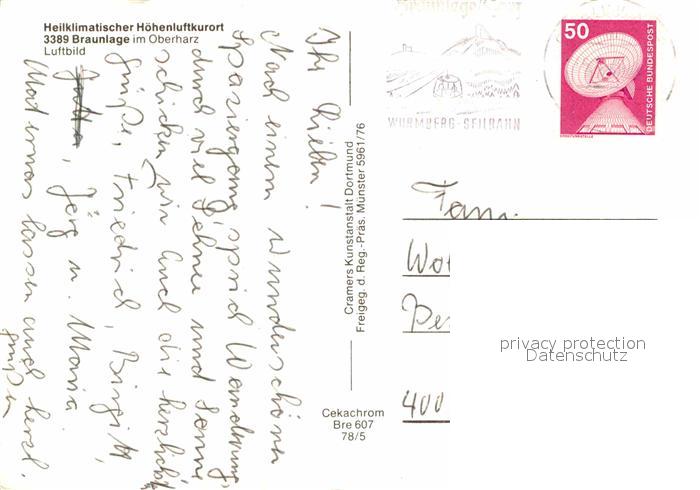 Heilklimatischer Höhenluftkurort
3389 Braunlage im Oberharz
Luftbild
Ihr Lieben!
Nach einem wunderschönen
Spaziergang sprich Wanderung
durch viel Schnee und Sonne
schicken wir Euch die herzlichst
Grüße, Friedrich, Birgitt,
Jutta, Jörg u. Maria
lassen auch herzl.
grüßen
Cramers Kunstanstalt Dortmund
Freigeg. d. Reg.-Präs. Münster 5961/76
Cekachrom
Bre 607
78/5
WURMBERG-SEILBAHN
50
DEUTSCHE BUNDESPOST
ERDEFUNKSTELLE
Fam.
Wo
Pe
400
privacy protection
Datenschutz